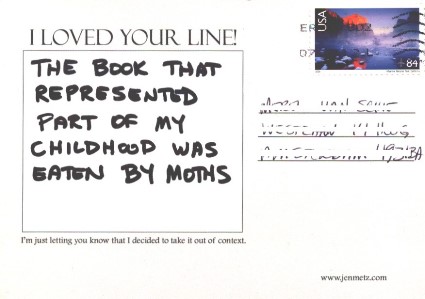 I LOVED YOUR LINE!
THE BOOK THAT
REPRESENTED
PART OF MY
CHILDHOOD WAS
EATEN BY MOTHS
I'm just letting you know that I decided to take it out of context.
USA
84
www.jenmetz.com